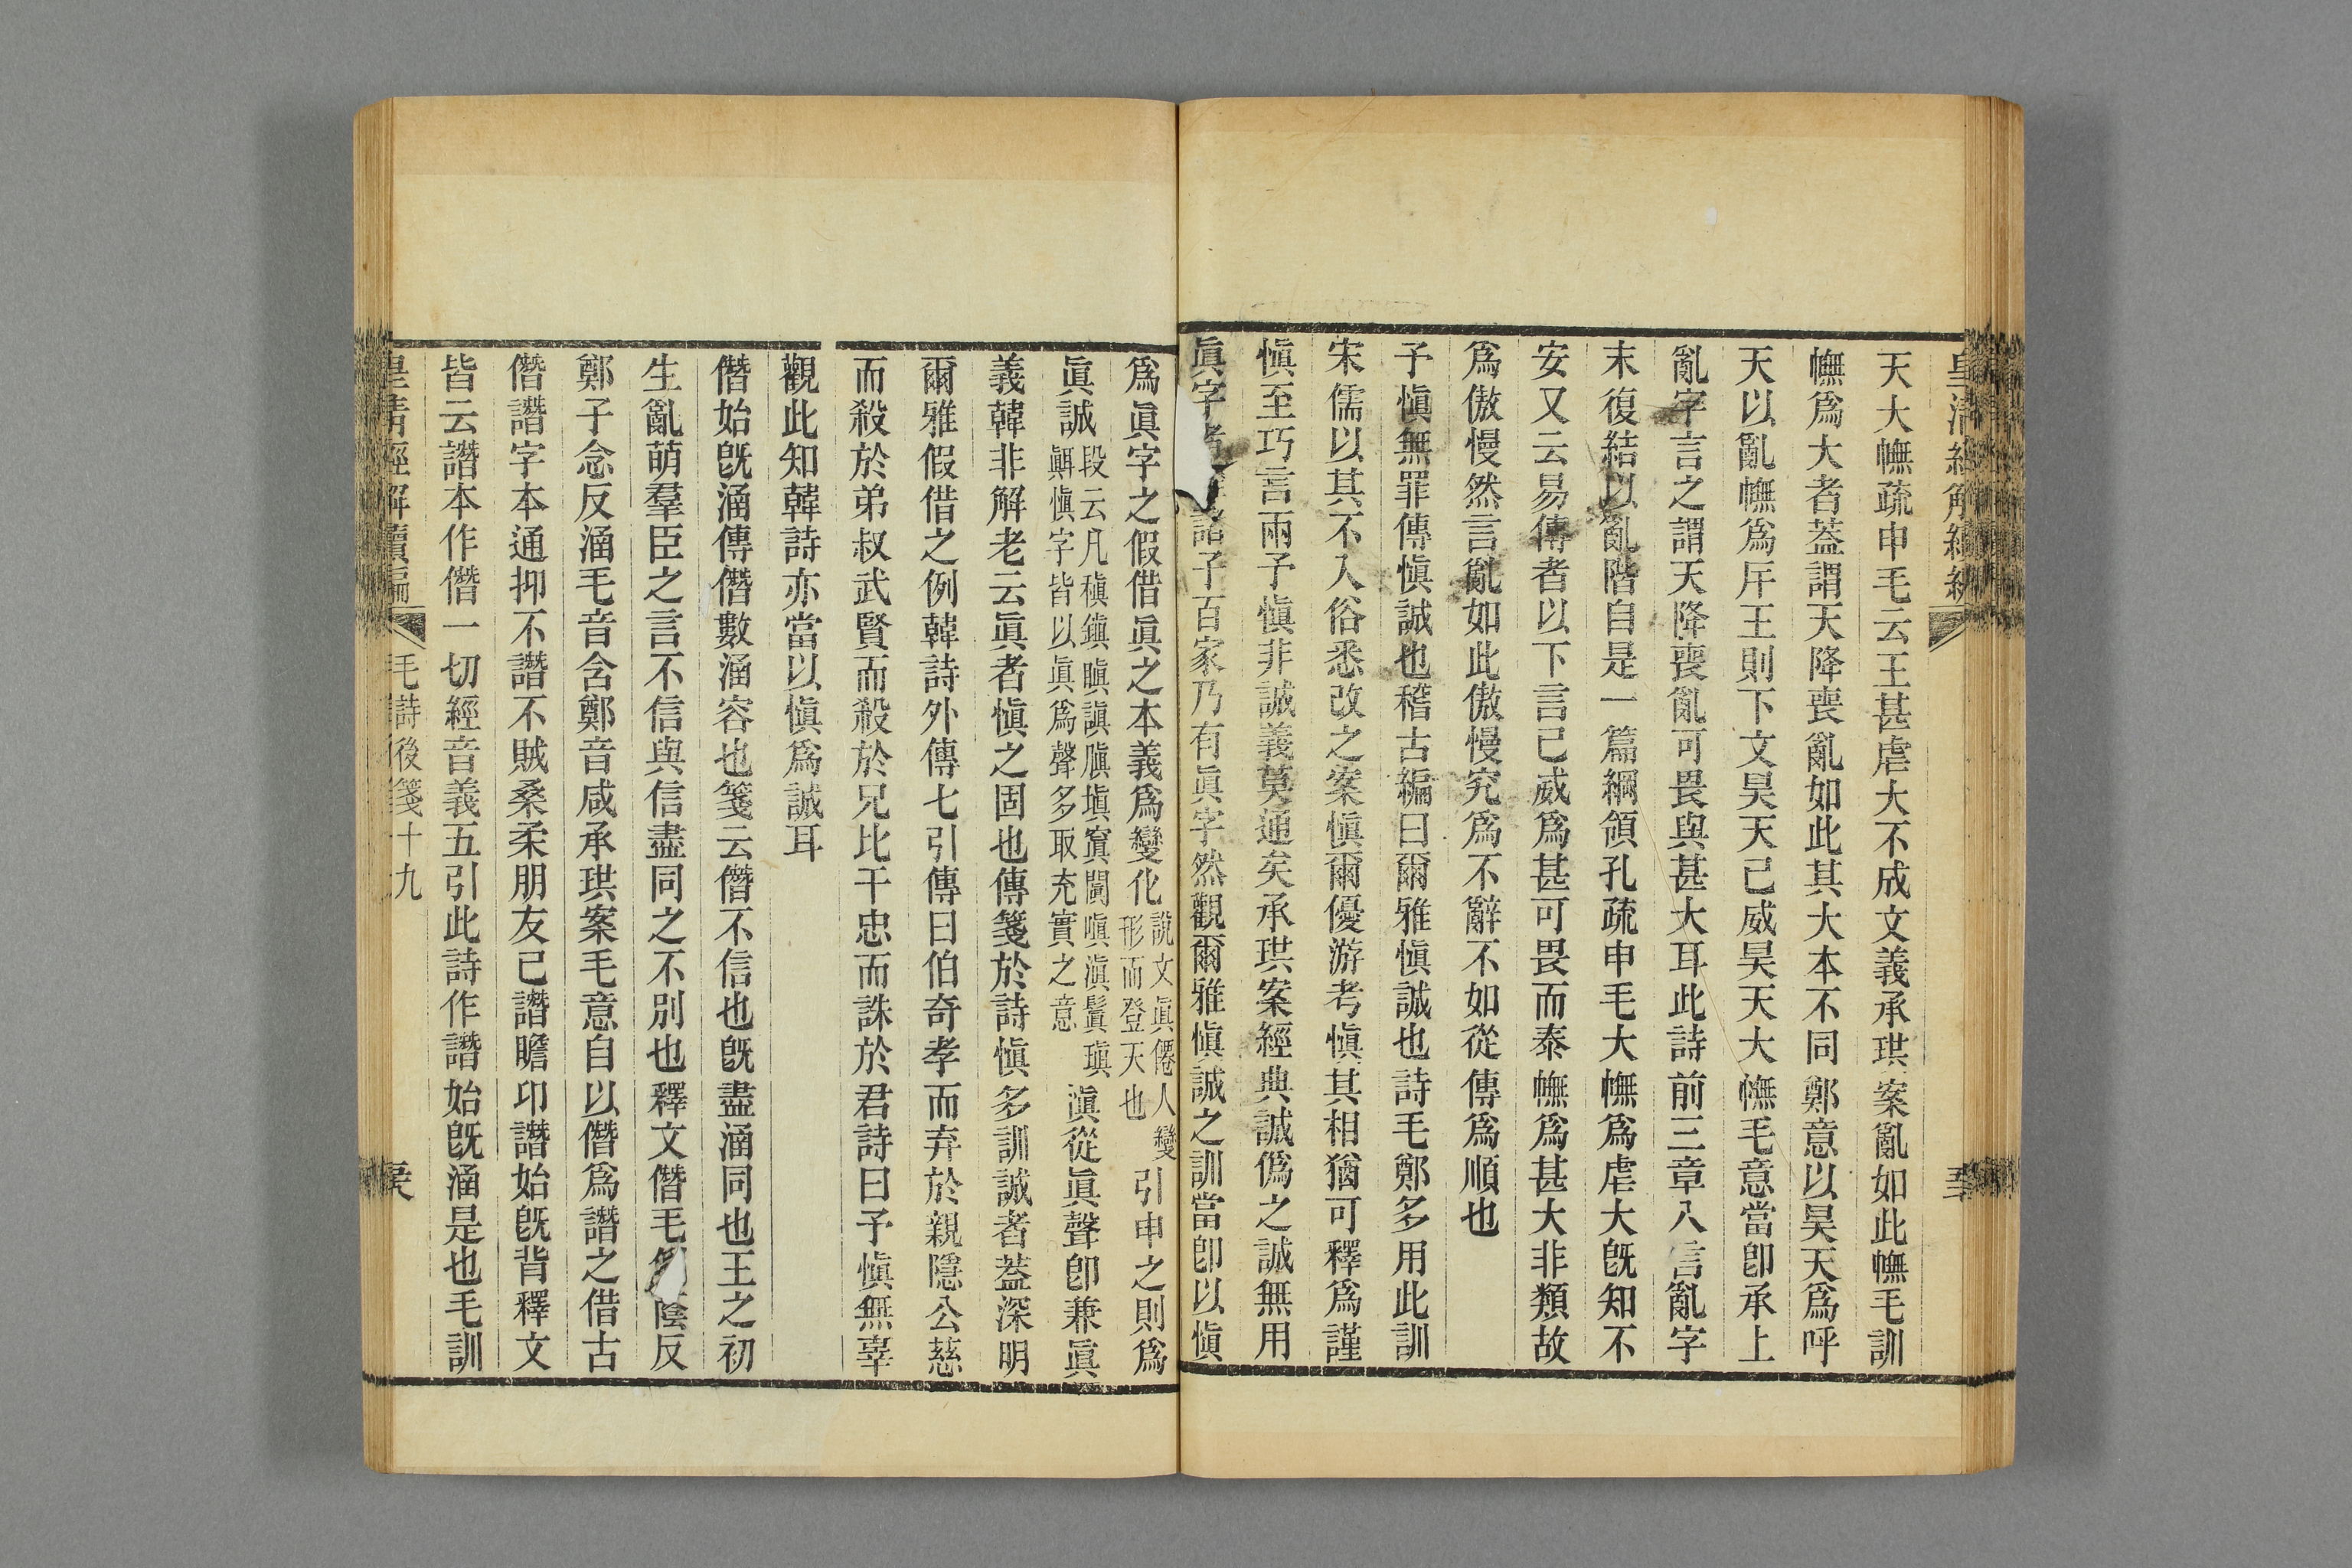 天大幠疏申毛云王甚虐大不成文義承珙案亂如此幠毛訓
幠爲大者葢謂天降喪亂如此其大本不同鄭意以昊天爲呼
天以亂幠爲厈王則下文昊天已威昊天大幠毛意當卽承上
亂字言之謂天降喪亂可畏與甚大耳此詩前三章八言亂字
末復結以亂階自是一篇綱領孔疏申毛大幠爲虐大旣知不
安又云易傳者以下言已威爲甚可畏而泰幠爲甚大非類故
爲傲慢然言亂如此傲慢究爲不辭不如從傳爲順也
予愼無罪傳愼誠也稽古編曰爾雅愼誠也詩毛鄭多用此訓
宋儒以其不入俗悉改之案愼爾優游考愼其相猶可釋爲謹
愼至巧言兩予愼非誠義莫通矣承珙案經典誠僞之誠無用
眞字諸子百家乃有眞字然觀爾雅愼誠之訓當卽以愼
爲眞字之假借眞之本義爲變化說文眞僊人變形而登天也引申之則爲
眞誠段云凡稹鎭瞋謓膹塡窴闐嗔滇鬒瑱顚愼字皆以眞爲聲多取充實之意滇從眞聲卽兼眞
義韓非解老云眞者愼之固也傳箋於詩愼多訓誠者葢深明
爾雅假借之例韓詩外傳七引傳曰伯奇孝而弃於親隱公慈
而殺於弟叔武賢而殺於兄比干忠而誅於君詩曰予愼無辜
觀此知韓詩亦當以愼爲誠耳
僭始旣涵傳僭數涵容也箋云僭不信也旣盡涵同也王之初
生亂萌羣臣之言不信與信盡同之不別也釋文僭毛側蔭反
鄭子念反涵毛音含鄭音咸承珙案毛意自以僭爲譖之借古
僭譖字本通抑不譖不賊桑柔朋友已譖瞻卬譖始旣背釋文
皆云譖本作僭一切經音義五引此詩作譖始旣涵是也毛訓
皇清經解續編 毛詩後箋十九